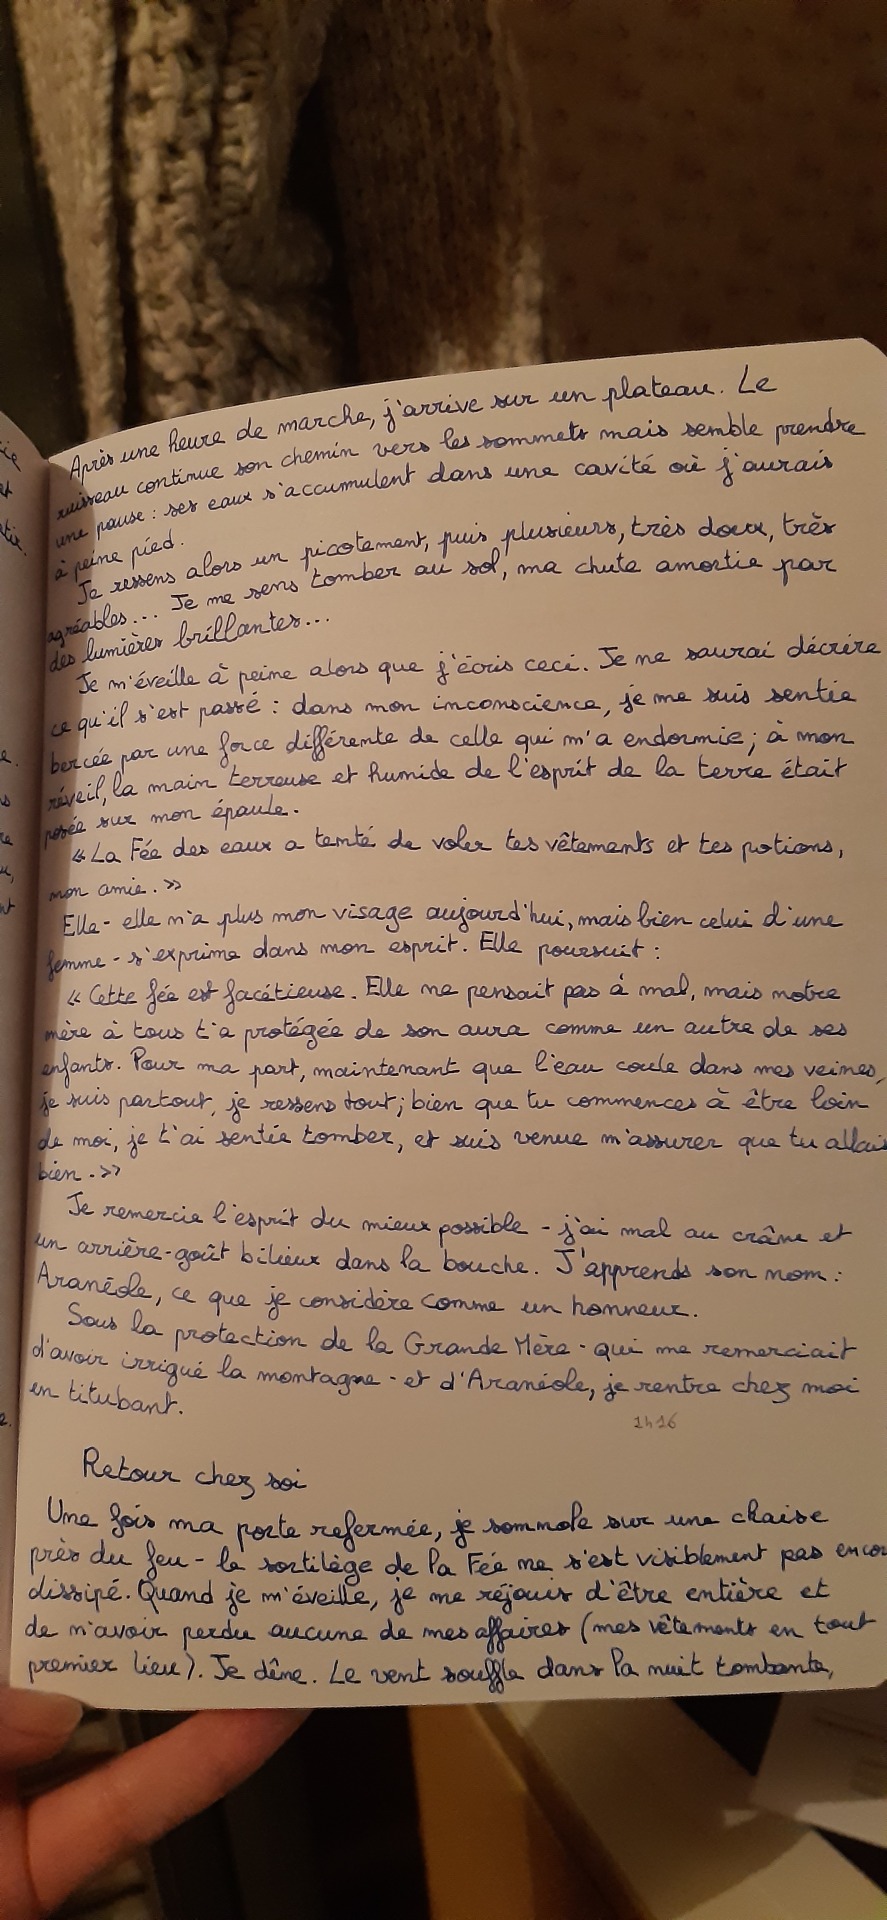 Après une heure de marche, j'arrive sur un plateau. Le
ruisseau continue son chemin vers les sommets mais semble prendre
une pause : ses eaux s'accumulent dans une cavité où j'aurais
à peine pied.
Je ressens alors un picotement, puis plusieurs, très doux, très
agréables... Je me sens tomber au sol, ma chute amortie par
des lumières brillantes...
Je m'éveille à peine alors que j'écris ceci. Je ne saurai décrire
ce qu'il s'est passé : dans mon inconscience, je me suis sentie
bercée par une force différente de celle qui m'a endormie ; à mon
réveil, la main terreuse et humide de l'esprit de la terre était
posée sur mon épaule.
« La Fée des eaux a tenté de voler tes vêtements et tes potions,
mon amie. »
Elle - elle n'a plus mon visage aujourd'hui, mais bien celui d'une
femme - s'exprime dans mon esprit. Elle poursuit :
« Cette fée est facétieuse. Elle ne pensait pas à mal, mais notre
mère à tous t'a protégée de son aura comme un autre de ses
enfants. Pour ma part, maintenant que l'eau coule dans mes veines,
je suis partout, je ressens tout ; bien que tu commences à être loin
de moi, je t'ai sentie tomber, et suis venue m'assurer que tu allais
bien. »
Je remercie l'esprit du mieux possible - j'ai mal au crâne et
un arrière-goût bilieux dans la bouche. J'apprends son nom :
Aranéole, ce que je considère comme un honneur.
Sous la protection de la Grande Mère - qui me remerciait
d'avoir irrigué la montagne - et d'Aranéole, je rentre chez moi
en titubant.
1h16
Retour chez soi
Une fois ma porte refermée, je somnole sur une chaise
près du feu - le sortilège de la Fée ne s'est visiblement pas encor
dissipé. Quand je m'éveille, je me réjouis d'être entière et
de n'avoir perdu aucune de mes affaires (mes vêtements en tout
premier lieu). Je dîne. Le vent souffle dans la nuit tombante,